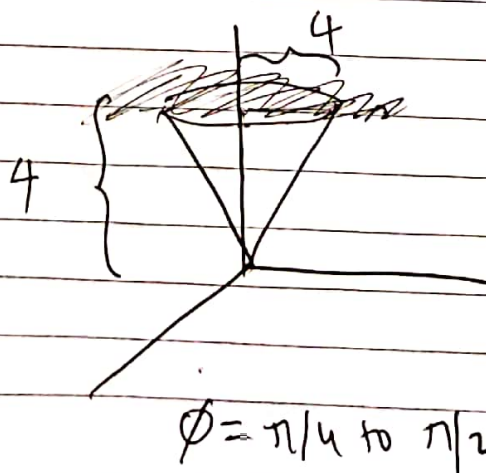 4
4
ϕ = π/4 to π/2